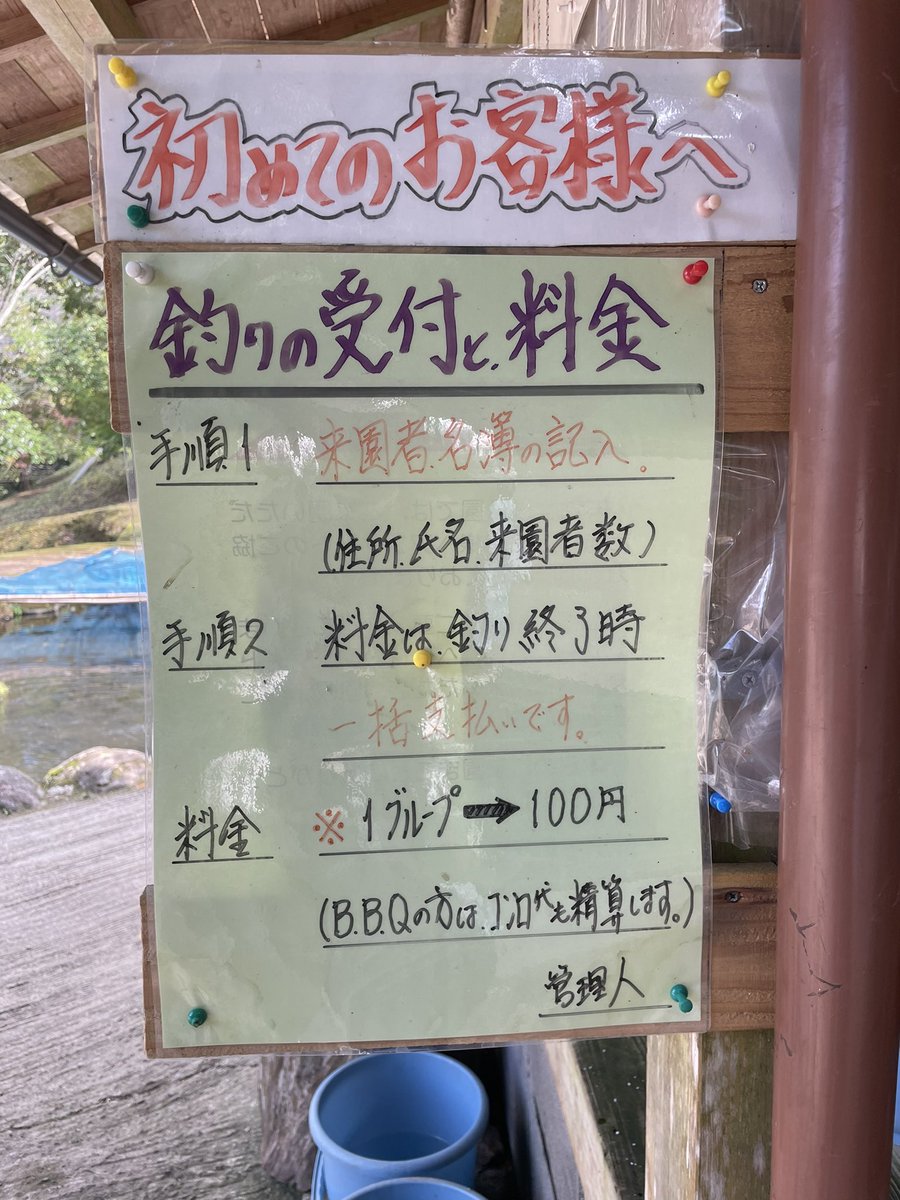 初めてのお客様へ
釣りの受付と、料金
手順1 来園者、名簿の記入。
(住所、氏名、来園者数)
手順2 料金は、釣り終了時
一括支払いです。
料金 ※1グループ➡100円
(B.B.Qの方は、コンロ代も精算します。)
管理人